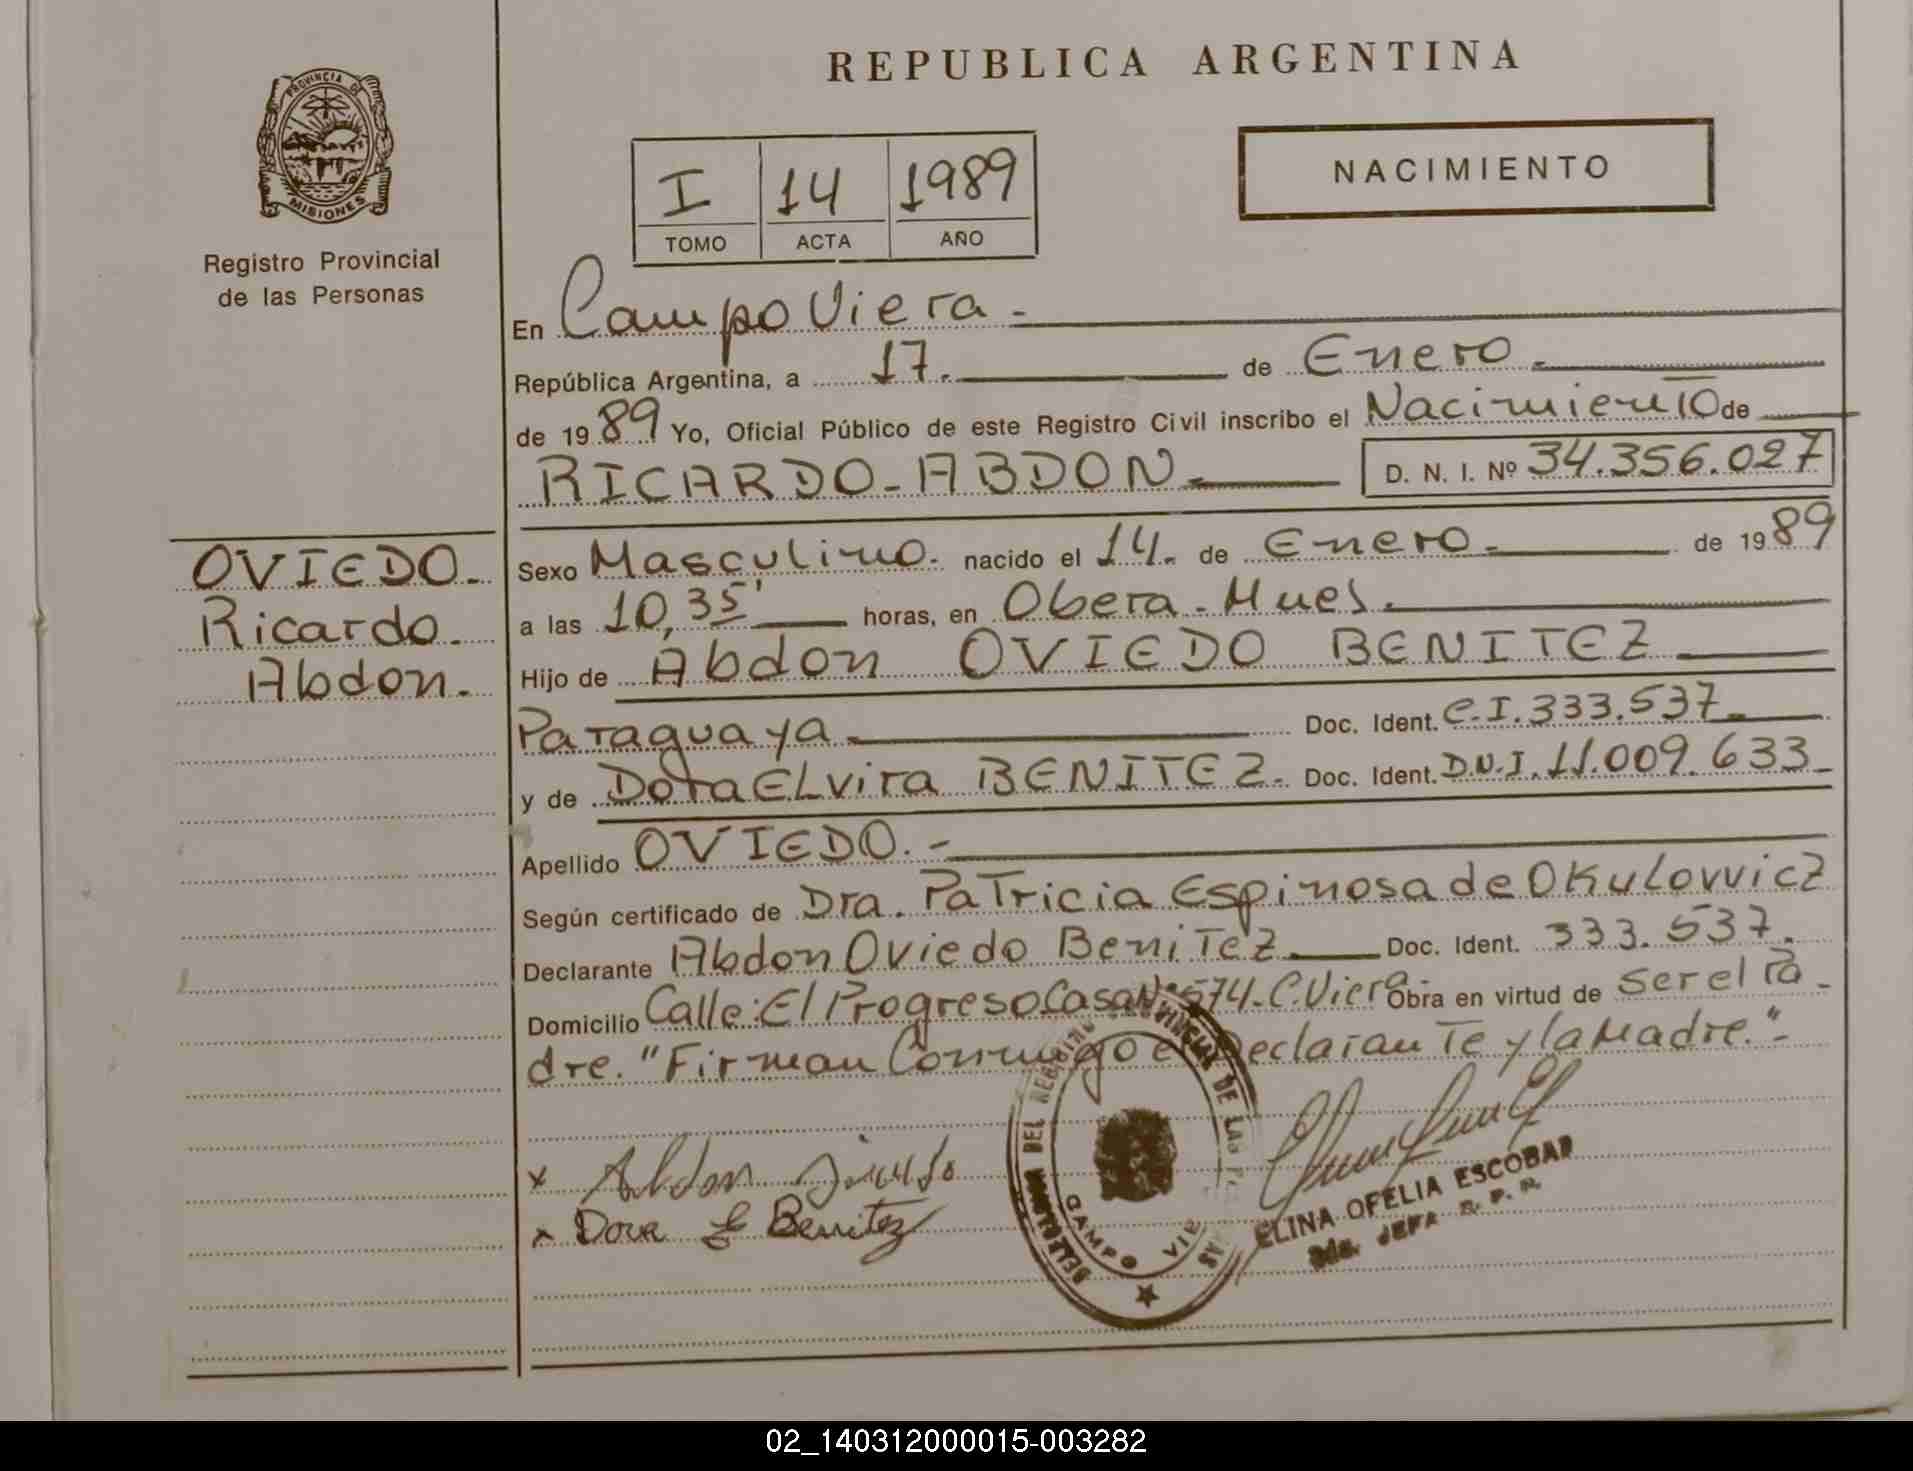 REPUBLICA ARGENTINA
PROVINCIA DE
MISIONES
Registro Provincial
de las Personas
I 14 1989
TOMO ACTA AÑO
NACIMIENTO
En Campo Viera.-
República Argentina, a 17. de Enero.-
de 1989 Yo, Oficial Público de este Registro Civil inscribo el Nacimiento de
RICARDO-ABDON.- D. N. I. Nº 34.356.027
OVIEDO.-
Ricardo.
Abdon.
Sexo Masculino. nacido el 14. de Enero.- de 1989
a las 10,35' horas, en Obera-Mnes.
Hijo de Abdon OVIEDO BENITEZ
Paraguaya.- Doc. Ident. C.I.333.537.-
y de Dora ELvira BENITEZ.- Doc. Ident. D.N.I. 11.009.633
Apellido OVIEDO.-
Según certificado de Dra. Patricia Espinosa de Okulovvicz
Declarante Abdon Oviedo BeniTez Doc. Ident. 333.537.
Domicilio Calle: El Progreso Casa Nº 574. C. Viera Obra en virtud de ser el Pa-
dre. "Firman Conmigo el Declarante y la Madre."-
x Abdon Oviedo
x Dora E Benitez
DEL REGISTRO PROVINCIAL DE LAS PERSONAS
CAMPO VIERA
ELINA OFELIA ESCOBAR
JEFA R. P. P.
02_140312000015-003282